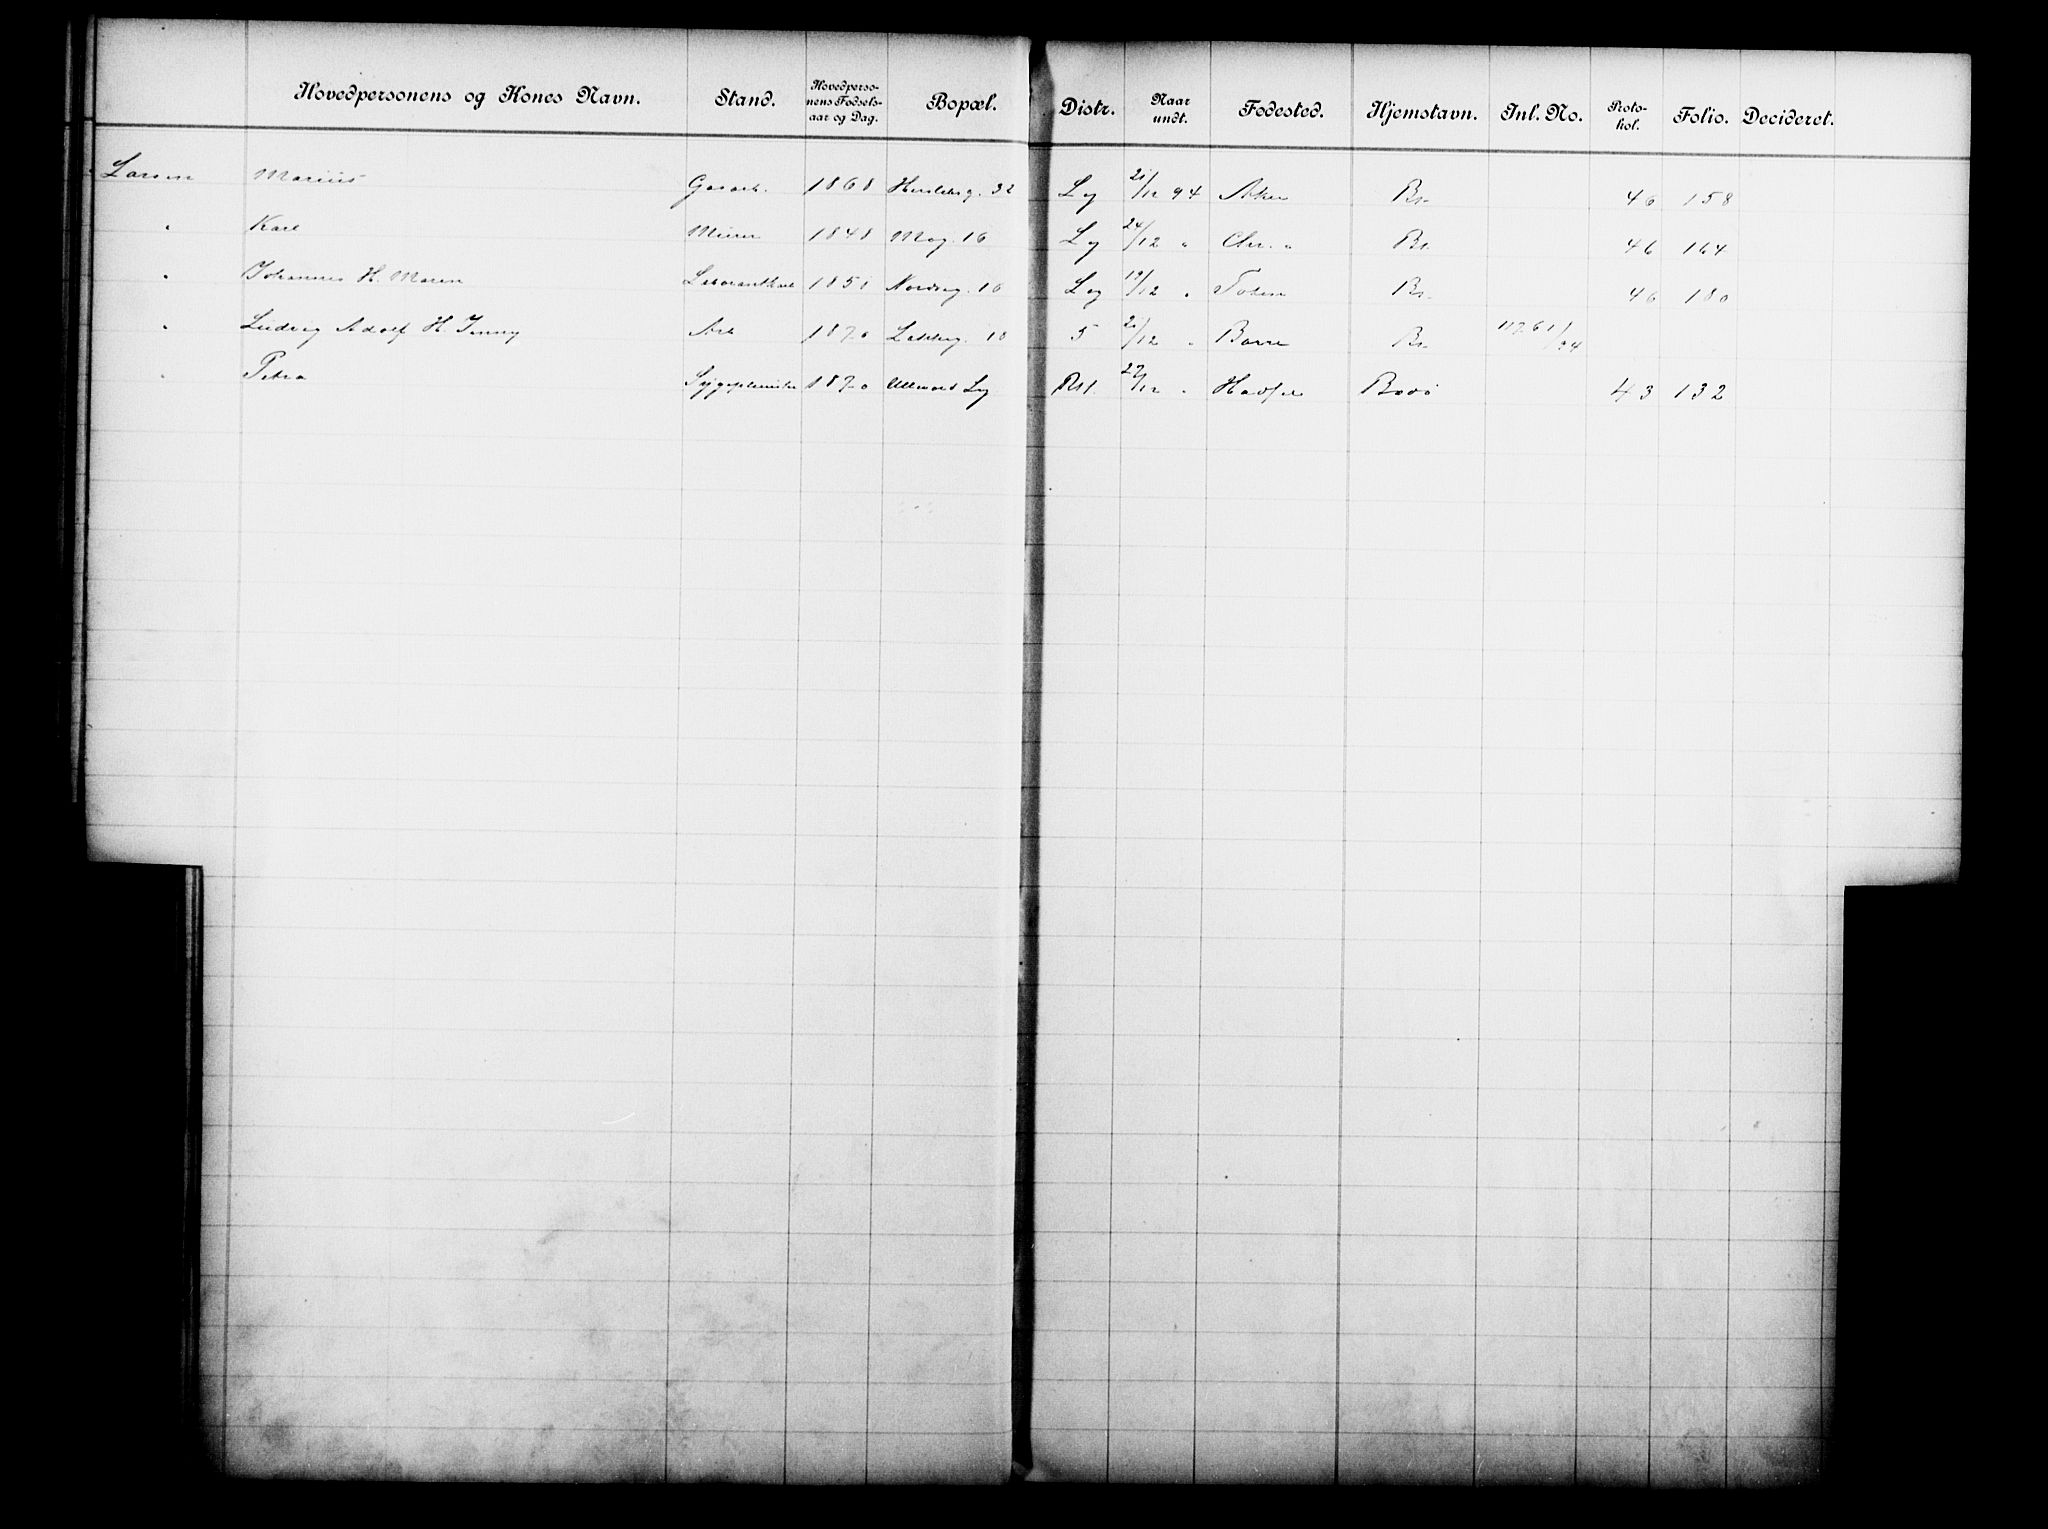 Hovedpersonens og Kones Navn. Stand. Hovedperso-nens Fødsels-aar og Dag. Bopæl. Distr. Naar undt. Fødested. Hjemstavn. Inl. No. Proto-kol. Folio. Decideret.
Larsen Marius Gasarb. 1868 22 Lg 21/12 94 Aker Br. 46 158
" Karl Murer 1848 Mag. 16 Lg 24/12 " Chr.a Br. 46 164
" Johannes H. Maren 1851 Nordreg. 16 Lg 19/12 " Toten Br. 46 180
" Ludvig Adolf H. Jenny Arb 1870 Lakkeg. 10 5 21/12 " Borre Br.
" Petra 1870 Ullevold Lg Rst. 27/12 " Bodø 43 132